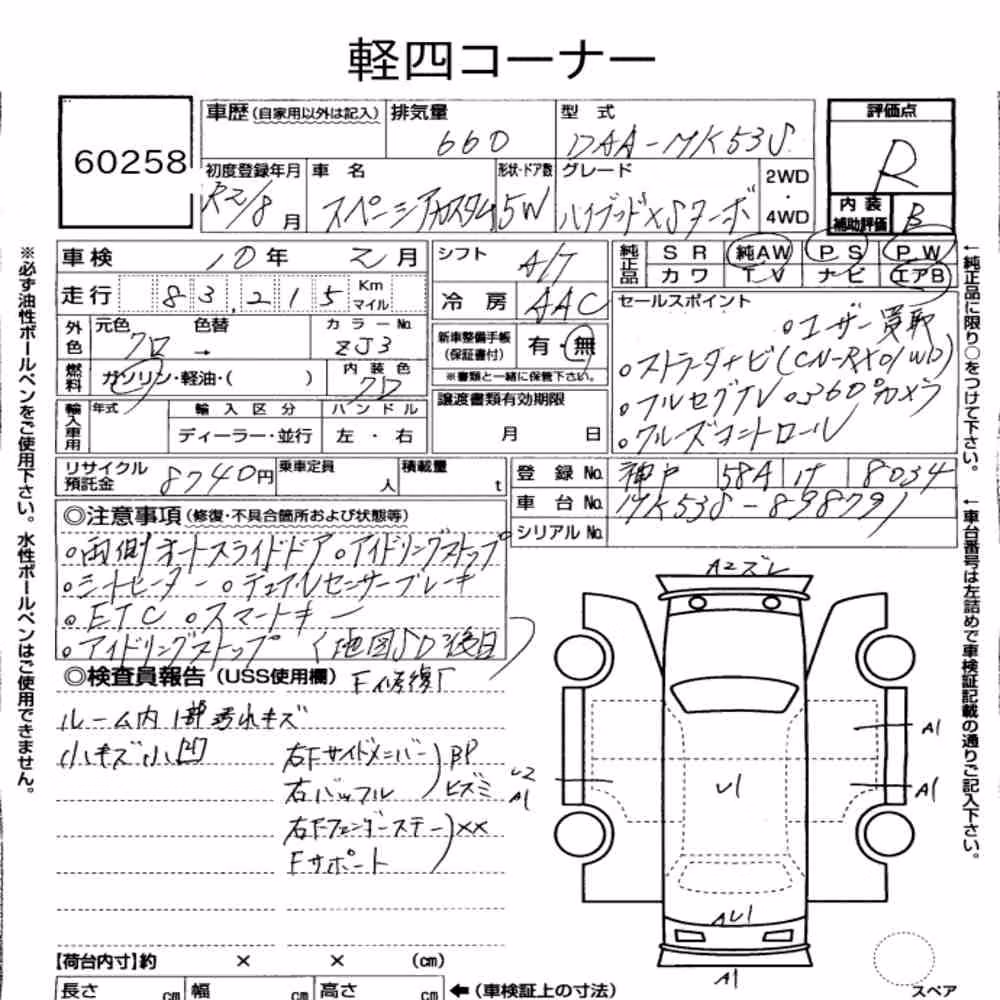 軽四コーナー
60258
車歴（自家用以外は記入） 排気量 660 型式 DAA-MK53S
評価点 R
初度登録年月 R2/8月 車名 スペーシアカスタム 形状・ドア数 5W グレード ハイブリッドXSターボ 2WD・4WD
内装補助評価 B
車検 10年 2月
走行 83,215 Km マイル
外色 元色 クロ → 色替 カラーNo. ZJ3
燃料 ガソリン・軽油・( ) 内装色 クロ
輸入車用 年式 輸入区分 ディーラー・並行 ハンドル 左・右
シフト A/T
冷房 AAC
新車整備手帳（保証書付） 有・無
※書類と一緒に保管下さい。
譲渡書類有効期限 月 日
純正品 SR 純AW PS PW
カワ TV ナビ エアB
セールスポイント
○ユーザー買取
○ストラーダナビ(CN-RX01WD)
○フルセグTV ○360°カメラ
○クルーズコントロール
リサイクル預託金 8740円 乗車定員 人 積載量 t
登録No. 神戸 584 8034
車台No. MK53S-898791
シリアルNo.
◎注意事項（修復・不具合箇所および状態等）
○両側オートスライドドア ○アイドリングストップ
○シートヒーター ○デュアルセンサーブレーキ
○ETC ○スマートキー
○アイドリングストップ (地図SD後日)
◎検査員報告（USS使用欄） F修復
ルーム内1部汚れキズ
小キズ小凹
右Fサイドメンバー BP
右バッフル ヒズミ
右Fフェンダーステー XX
Fサポート
A2ズレ
A1
U2
A1
U1
A1
AU1
A1
【荷台内寸】約 × × (cm)
長さ cm 幅 cm 高さ cm ←（車検証上の寸法）
スペア
※必ず油性ボールペンをご使用下さい。水性ボールペンはご使用できません。
←純正品に限り○をつけて下さい。
←車台番号は左詰めで車検証記載の通りご記入下さい。